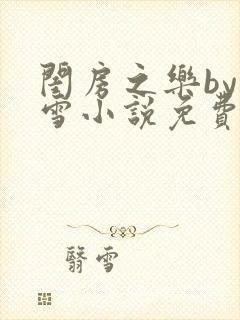 閨房之樂by
雪小說免費
翳雪